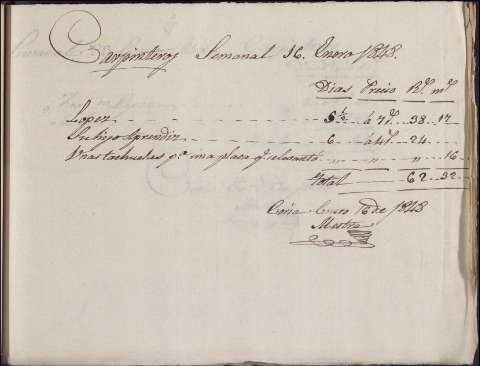 Carpinteros Semanal 16. Enero 1848.
Dias Precio Rs. ms.
Lopez 5 1/2 á 7 rs. 38.. 17
Su hijo Aprendiz 6 á 4 rs. 24..
Unas tachuelas pa. una plaza q.e 16
Total 62.. 32
Coria Enero 16 de 1848